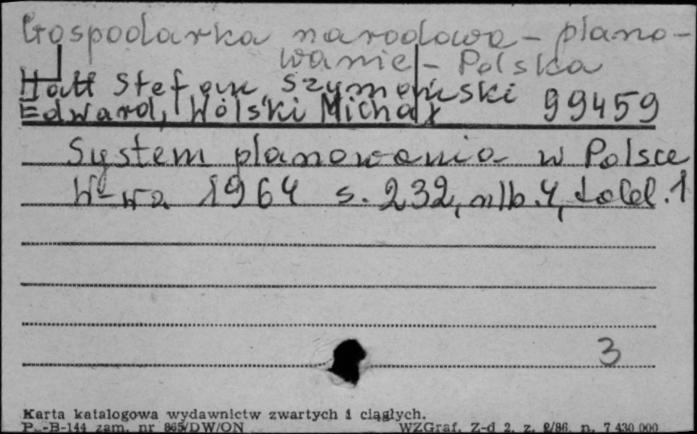 Gospodarka narodowa - plano-
wanie - Polska
Hatt Stefan, Szymański
Edward, Wolski Michał 99459
System planowania w Polsce
W-wa 1964 s. 232, nlb. 4, tabl. 1
3
Karta katalogowa wydawnictw zwartych i ciągłych.
P.-B-144 zam. nr 865/DW/ON WZGraf. Z-d 2. z. 2/86. n. 7 430 000